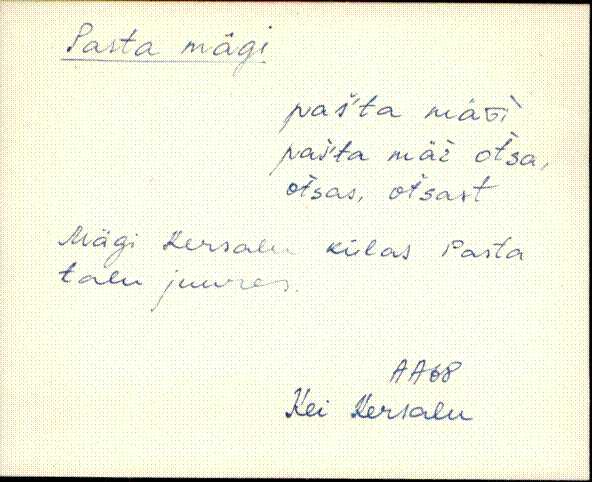 Pasta mägi
pašta mäɢi
pašta mäe otsa,
otsas, otsast
Mägi Kersalu külas Pasta
talu juures.
AA68
Kei Kersalu